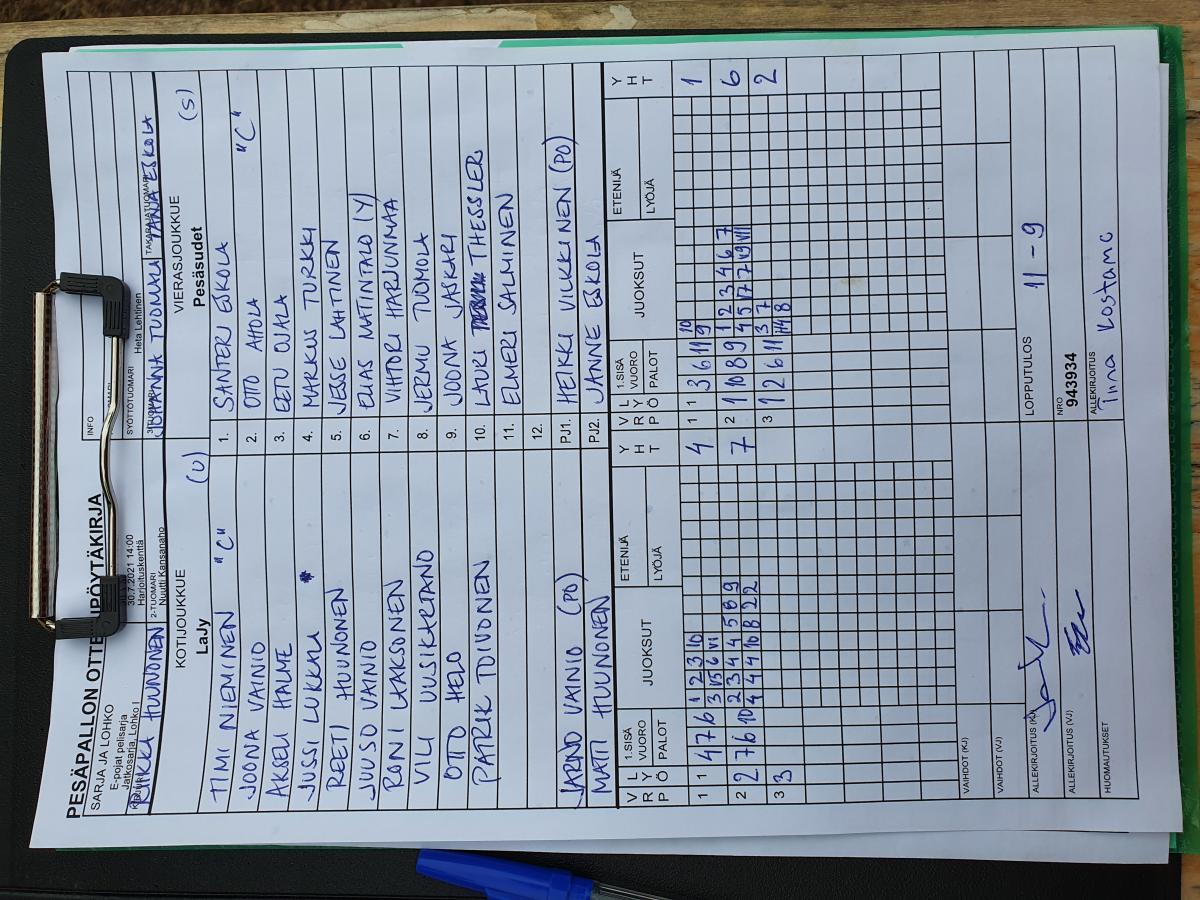 PESÄPALLON OTTELUPÖYTÄKIRJA
SARJA JA LOHKO
E-pojat pelisarja
Jatkosarja, Lohko I
30.7.2021 14:00
Harjoituskenttä
INFO
SYÖTTÖTUOMARI Heta Lehtinen
HUUNONEN
2-TUOMARI
Nuutti Kansanaho
3-TUOMARI
JOHANNA TUOMALA
TAKARAJATUOMARI
TANJA ESKOLA
KOTIJOUKKUE (U)
LaJy
VIERASJOUKKUE (S)
Pesäsudet
TIMI NIEMINEN "C" 1. SANTERI ESKOLA
JOONA VAINIO 2. OTTO AHOLA "C"
AKSELI HALME 3. EETU OJALA
JUSSI LUKKALA 4. MARKUS TURKKI
REETI HUUNONEN 5. JESSE LAHTINEN
JUUSO VAINIO 6. ELIAS MATINTALO (Y)
RONI LAAKSONEN 7. VIHTORI HARJUNMAA
VILI UUSIKARTANO 8. JERMU TUOMOLA
OTTO HELO 9. JOONA JASKARI
PATRIK TOIVONEN 10. LAURI THESSLER
11. ELMERI SALMINEN
12.
JARNO VAINIO (PO) PJ1. HEIKKI VILKKINEN (PO)
MATTI HUUNONEN PJ2. JANNE ESKOLA
V R P L Y Ö 1.SISÄ VUORO PALOT JUOKSUT ETENIJÄ LYÖJÄ Y H T V R P L Y Ö 1.SISÄ VUORO PALOT JUOKSUT ETENIJÄ LYÖJÄ Y H T
1 1 4 7 6 1 2 3 10 4 1 1 3 6 11 10 1
3 V5 6 VI 9
2 2 7 6 10 2 3 4 4 5 8 9 7 2 1 10 8 9 1 2 3 4 6 7 6
4 4 4 10 8 2 2 4 5 V7 7 V9 VII
3 3 3 1 2 6 11 3 7 2
8
VAIHDOT (KJ)
VAIHDOT (VJ)
ALLEKIRJOITUS (KJ) LOPPUTULOS 11 - 9
ALLEKIRJOITUS (VJ) NRO
943934
HUOMAUTUKSET ALLEKIRJOITUS
Tiina Kostamo